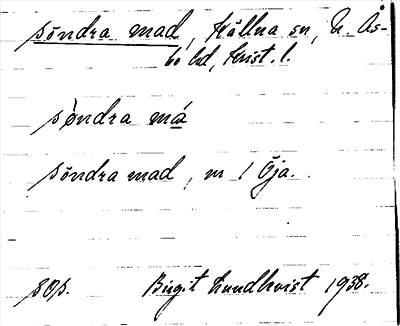 söndra mad, Källna sn, N. Ås-
bo hd, Krist. l.
söndra má
söndra mad, nr 1 Öja.
sop. Birgit Lundkvist 1938.